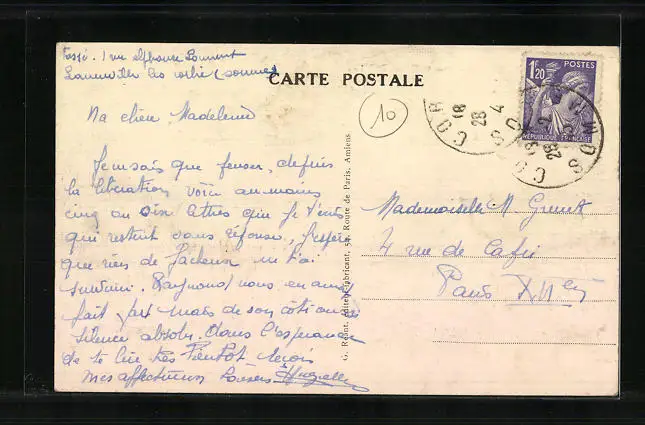 1 rue Alphonse
CARTE POSTALE
Ma chère Madeleine
10
Je ne sais que penser, depuis
la libération voici au moins
cinq ou six lettres que je t'écris
qui restent sans réponse, j'espère
que rien de fâcheux ne t'ai
Raymond nous en avait
fait part mais de son côté aussi
silence absolu. Dans l'espérance
de te lire très bientôt reçois
mes affectueux baisers
G. Réant, éditeur-fabricant, 54, Route de Paris, Amiens.
POSTES
1F20
RÉPUBLIQUE FRANÇAISE
Mademoiselle M.
4 rue de
Paris